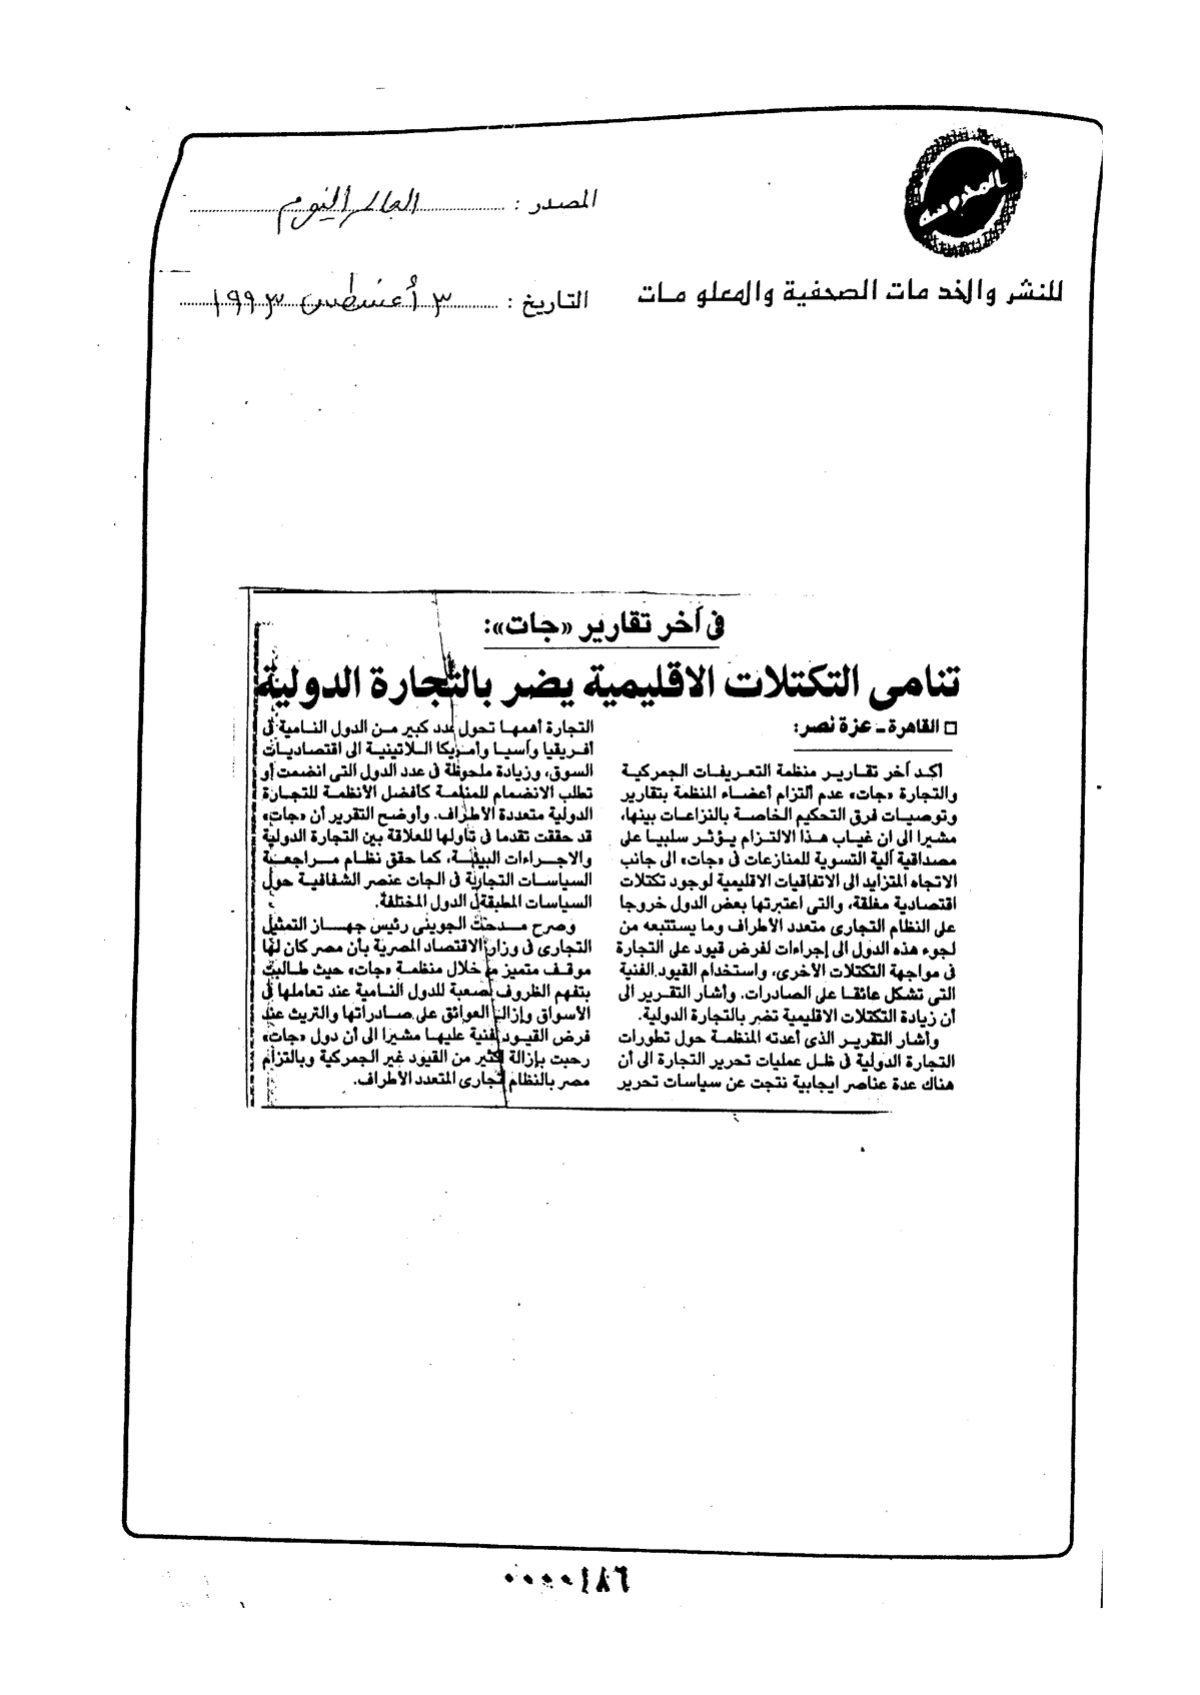 المحروسة
للنشر والخدمات الصحفية والمعلومات
المصدر : العالم اليوم
التاريخ : ٣ أغسطس ١٩٩٣
فى آخر تقارير «جات»:
تنامى التكتلات الاقليمية يضر بالتجارة الدولية
□ القاهرة ـ عزة نصر:
أكد آخر تقارير منظمة التعريفات الجمركية
والتجارة «جات» عدم التزام أعضاء المنظمة بتقارير
وتوصيات فرق التحكيم الخاصة بالنزاعات بينها،
مشيرا الى ان غياب هذا الالتزام يؤثر سلبيا على
مصداقية آلية التسوية للمنازعات فى «جات» الى جانب
الاتجاه المتزايد الى الاتفاقيات الاقليمية لوجود تكتلات
اقتصادية مغلقة، والتى اعتبرتها بعض الدول خروجا
على النظام التجارى متعدد الأطراف وما يستتبعه من
لجوء هذه الدول الى إجراءات لفرض قيود على التجارة
فى مواجهة التكتلات الأخرى، واستخدام القيود الفنية
التى تشكل عائقا على الصادرات. وأشار التقرير الى
أن زيادة التكتلات الاقليمية تضر بالتجارة الدولية.
وأشار التقرير الذى أعدته المنظمة حول تطورات
التجارة الدولية فى ظل عمليات تحرير التجارة الى أن
هناك عدة عناصر ايجابية نتجت عن سياسات تحرير
التجارة أهمها تحول عدد كبير من الدول النامية فى
أفريقيا وآسيا وأمريكا اللاتينية الى اقتصاديات
السوق، وزيادة ملحوظة فى عدد الدول التى انضمت أو
تطلب الانضمام للمنظمة كأفضل الأنظمة للتجارة
الدولية متعددة الأطراف. وأوضح التقرير أن «جات»
قد حققت تقدما فى تناولها للعلاقة بين التجارة الدولية
والاجراءات البيئية، كما حقق نظام مراجعة
السياسات التجارية فى الجات عنصر الشفافية حول
السياسات المطبقة فى الدول المختلفة.
وصرح مدحت الجوينى رئيس جهاز التمثيل
التجارى فى وزارة الاقتصاد المصرية بأن مصر كان لها
موقف متميز من خلال منظمة «جات» حيث طالبت
بتفهم الظروف الصعبة للدول النامية عند تعاملها فى
الأسواق وإزالة العوائق على صادراتها والتريث عند
فرض القيود الفنية عليها مشيرا الى أن دول «جات»
رحبت بإزالة الكثير من القيود غير الجمركية وبالتزام
مصر بالنظام التجارى المتعدد الأطراف.